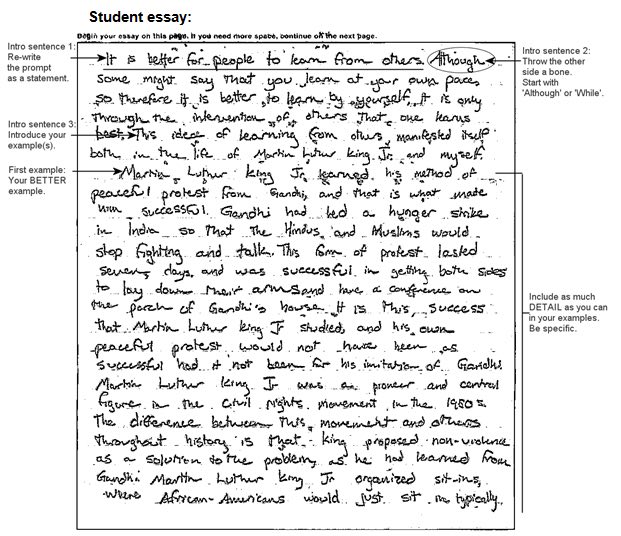 Student essay:
Begin your essay on this page. If you need more space, continue on the next page.
Intro sentence 1:
Re-write
the prompt
as a statement.
Intro sentence 2:
Throw the other
side a bone.
Start with
'Although' or 'While'.
Intro sentence 3:
Introduce your
example(s).
First example:
Your BETTER
example.
Include as much
DETAIL as you can
in your examples.
Be specific.
It is better for people to learn from others. Although
some might say that you learn at your own pace,
so therefore it is better to learn by yourself, it is only
through the intervention of others that one learns
best. This idea of learning from others manifested itself
both in the life of Martin Luther King Jr. and myself.
Martin Luther King Jr learned his method of
peaceful protest from Gandhi, and that is what made
him successful. Gandhi had led a hunger strike
in India so that the Hindus and Muslims would
stop fighting and talk. This form of protest lasted
seven days, and was successful in getting both sides
to lay down their arms and have a conference on
the porch of Gandhi's house. It is this success
that Martin Luther King Jr studied, and his own
peaceful protest would not have been as
successful had it not been for his imitation of Gandhi.
Martin Luther King Jr was a pioneer and central
figure in the civil rights movement in the 1950's.
The difference between this movement and others
throughout history is that King proposed non-violence
as a solution to the problem, as he had learned from
Gandhi. Martin Luther King Jr organized sit-ins,
where African-Americans would just sit in typically